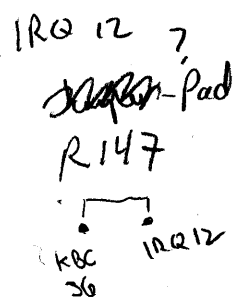 IRQ 12 ?
-Pad
R147
KBC IRQ12
36